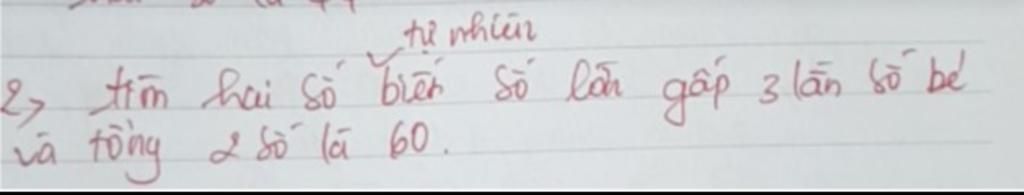 tự nhiên
2, tìm hai số biết số lớn gấp 3 lần số bé
và tổng 2 số là 60.